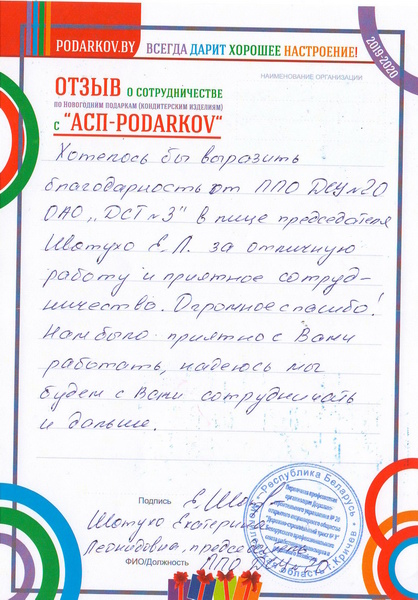 PODARKOV.BY
ВСЕГДА ДАРИТ ХОРОШЕЕ НАСТРОЕНИЕ!
2019-2020
НАИМЕНОВАНИЕ ОРГАНИЗАЦИИ
ОТЗЫВ О СОТРУДНИЧЕСТВЕ
ПО НОВОГОДНИМ ПОДАРКАМ (КОНДИТЕРСКИМ ИЗДЕЛИЯМ)
С "АСП-PODARKOV"
Хотелось бы выразить
благодарность от ППО ДСУ №20
ОАО „ДСТ №3" в лице председателя
Шотухо Е.Л. за отличную
работу и приятное сотруд-
ничество. Огромное спасибо!
Нам было приятно с Вами
работать, надеюсь мы
будем с Вами сотрудничать
и дальше.
Подпись
Шотухо Екатерина
Леонидовна, председатель
ФИО/Должность ППО ДСУ №20
Республика Беларусь
г. Кричев